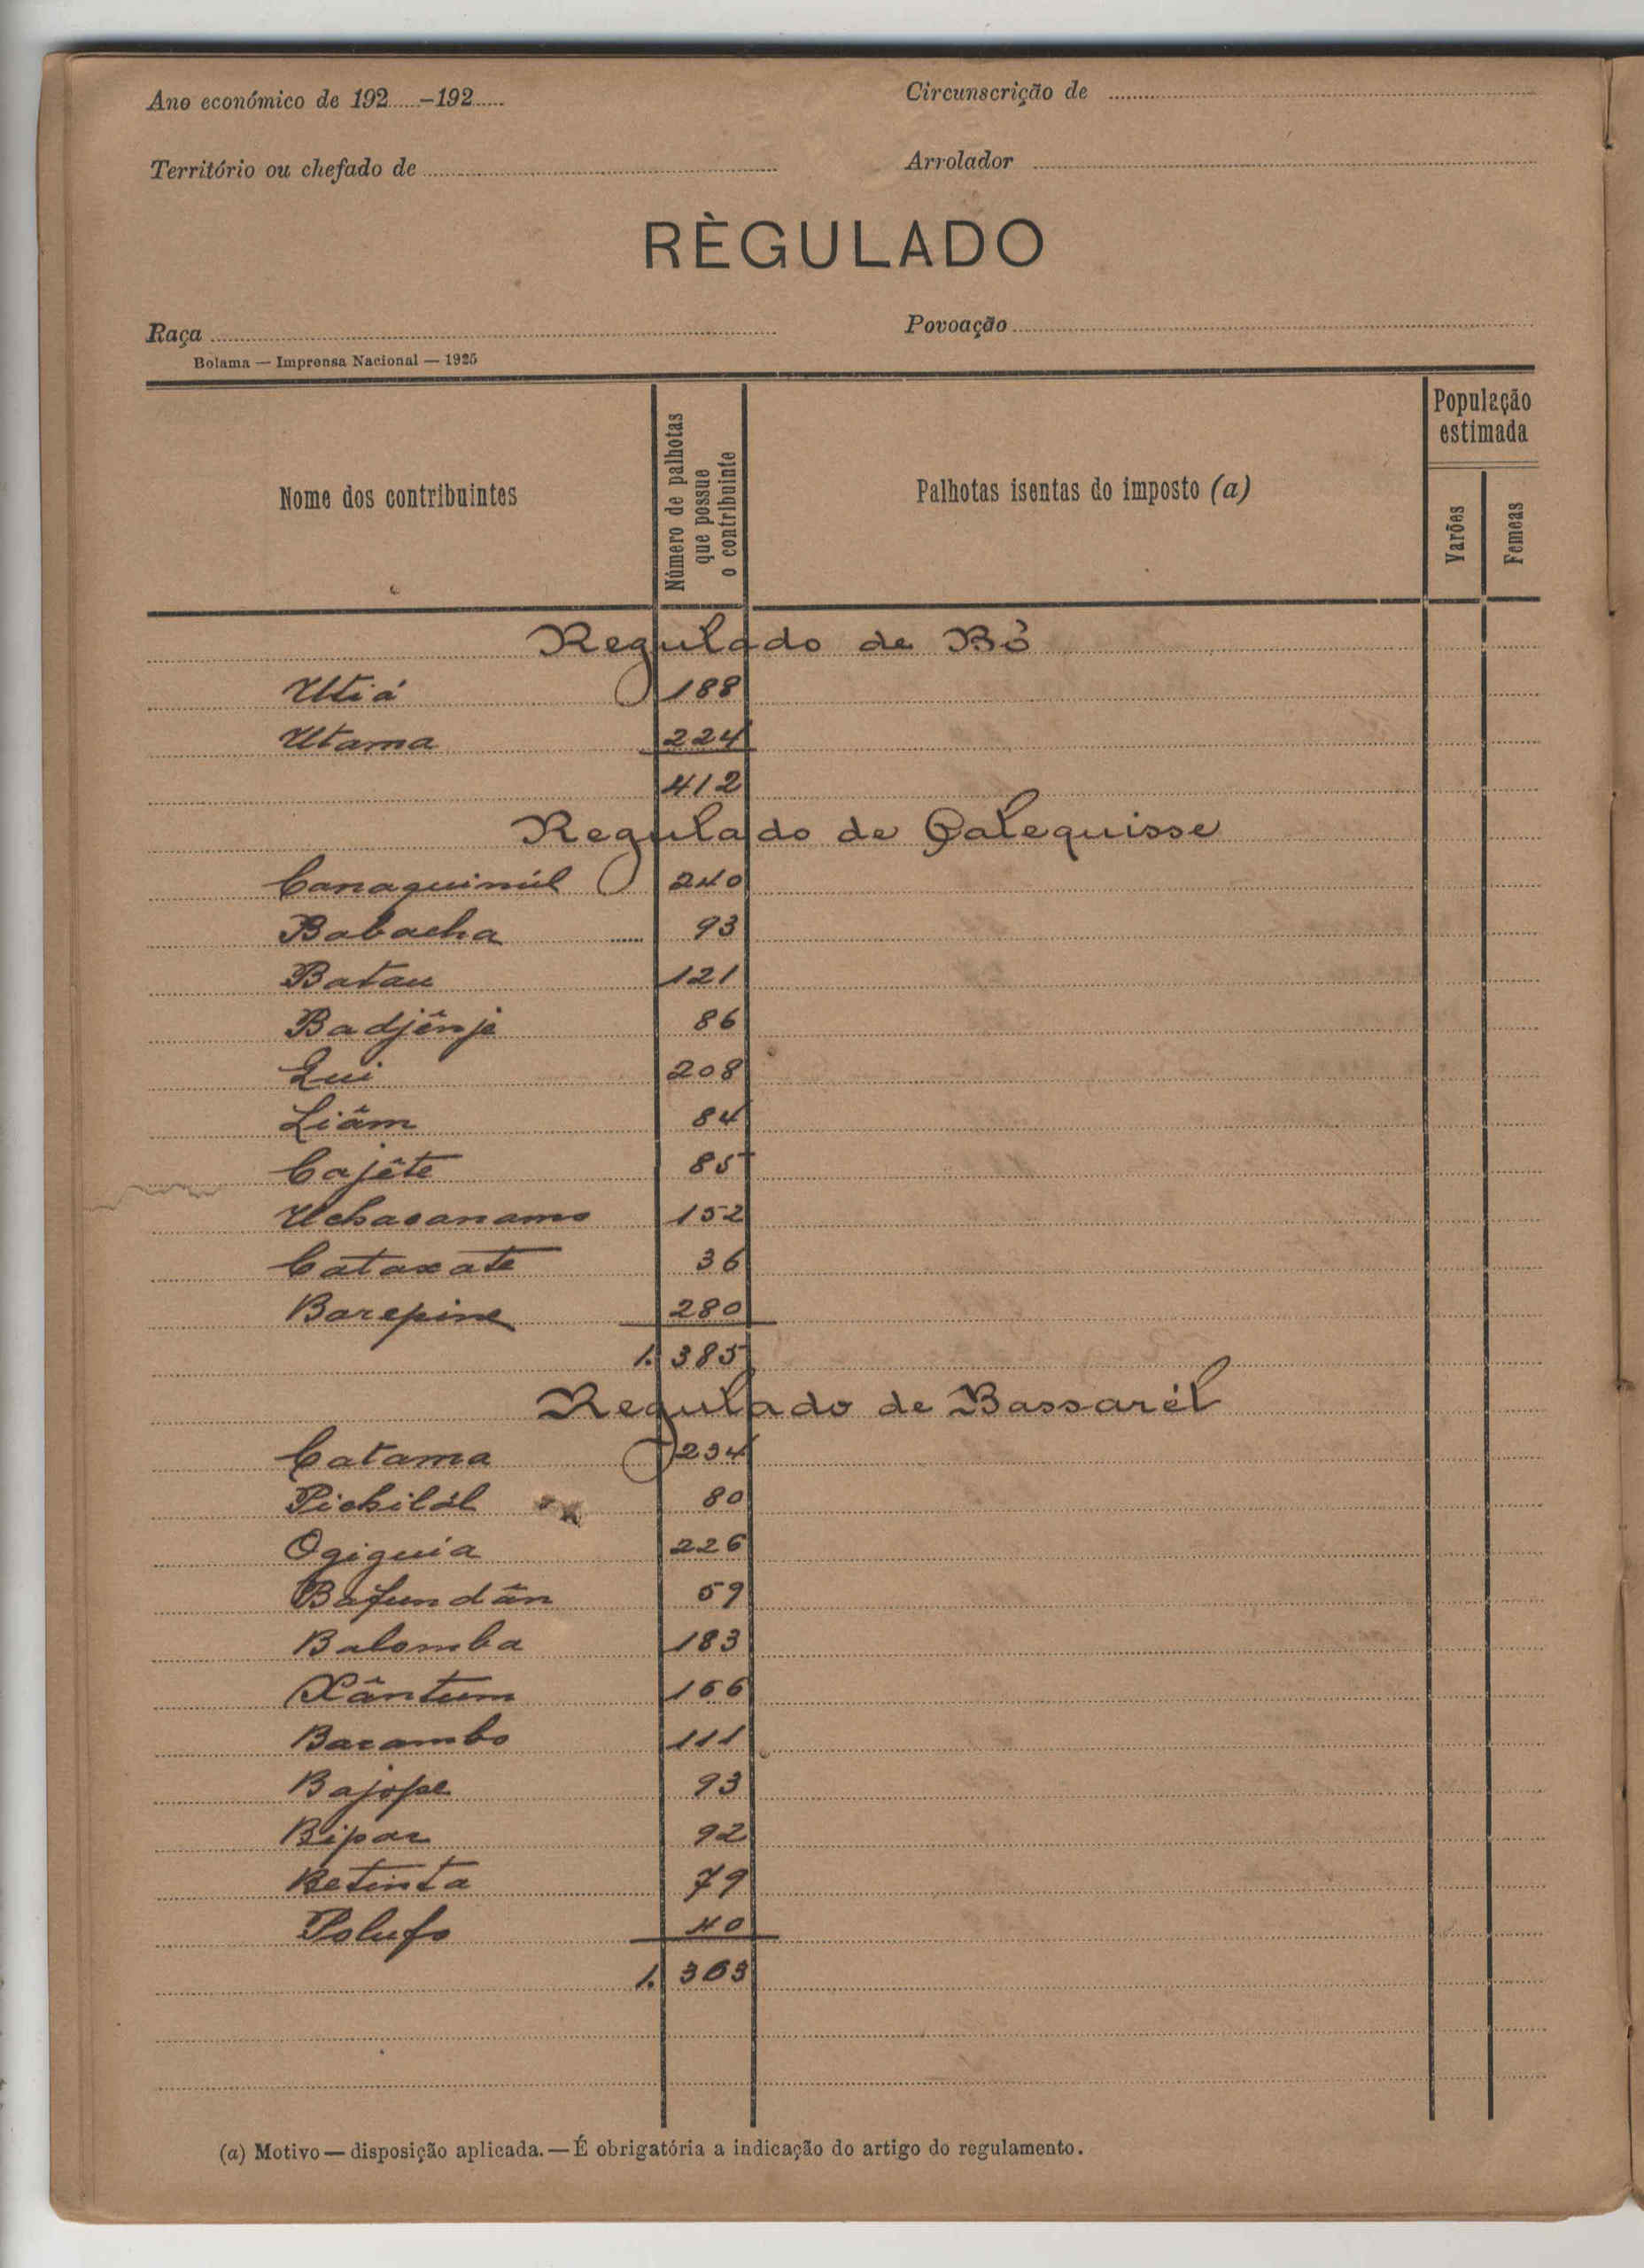 Ano económico de 192.....-192.....
Circunscrição de
Território ou chefado de
Arrolador
RÈGULADO
Raça
Povoação
Bolama — Imprensa Nacional — 1925
Nome dos contribuintes
Número de palhotas que possue o contribuinte
Palhotas isentas do imposto (a)
População estimada
Varões
Femeas
Regulado de Bó
Utiá 188
Utama 224
412
Regulado de Calequisse
Canaquinúl 240
Babacha 93
Batau 121
Badjênje 86
Qui 208
Liâm 84
Cajête 85
Uchacaname 152
Cataxate 36
Barepine 280
1.385
Regulado de Bassarél
Catama 234
Pichilál 80
Ogiguia 226
Bafundân 59
Balomba 183
Xântum 166
Bacambo 111
Bajope 93
Bipar 92
Betinta 79
Polufo 40
1.363
(a) Motivo — disposição aplicada. — É obrigatória a indicação do artigo do regulamento.